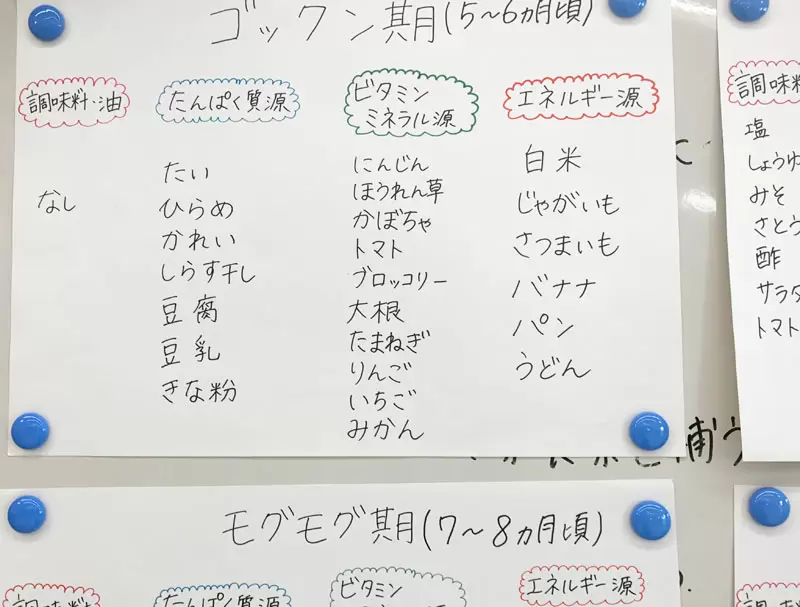 ゴックン期(5〜6ヵ月頃)
調味料・油
なし
たんぱく質源
たい
ひらめ
かれい
しらす干し
豆腐
豆乳
きな粉
ビタミン
ミネラル源
にんじん
ほうれん草
かぼちゃ
トマト
ブロッコリー
大根
たまねぎ
りんご
いちご
みかん
エネルギー源
白米
じゃがいも
さつまいも
バナナ
パン
うどん
調味料
塩
しょうゆ
みそ
さとう
酢
サラダ
トマト
モグモグ期(7〜8ヵ月頃)
調味料
たんぱく質源
ビタミン
エネルギー源